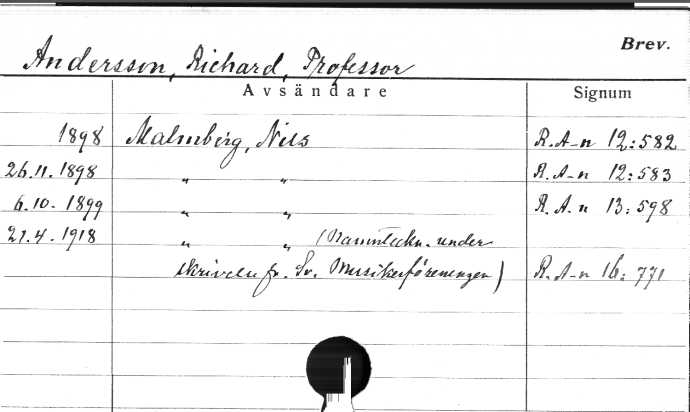 Brev.
Andersson, Richard, Professor
Avsändare Signum
1898 Malmberg, Nils R.A-n 12:582
26.11.1898 " " R.A-n 12:583
6.10.1899 " " R.A.n 13:598
21.4.1918 " " (Namnteckn. under
skrivelse fr. Sv. Musikerföreningen) R.A-n 16:771